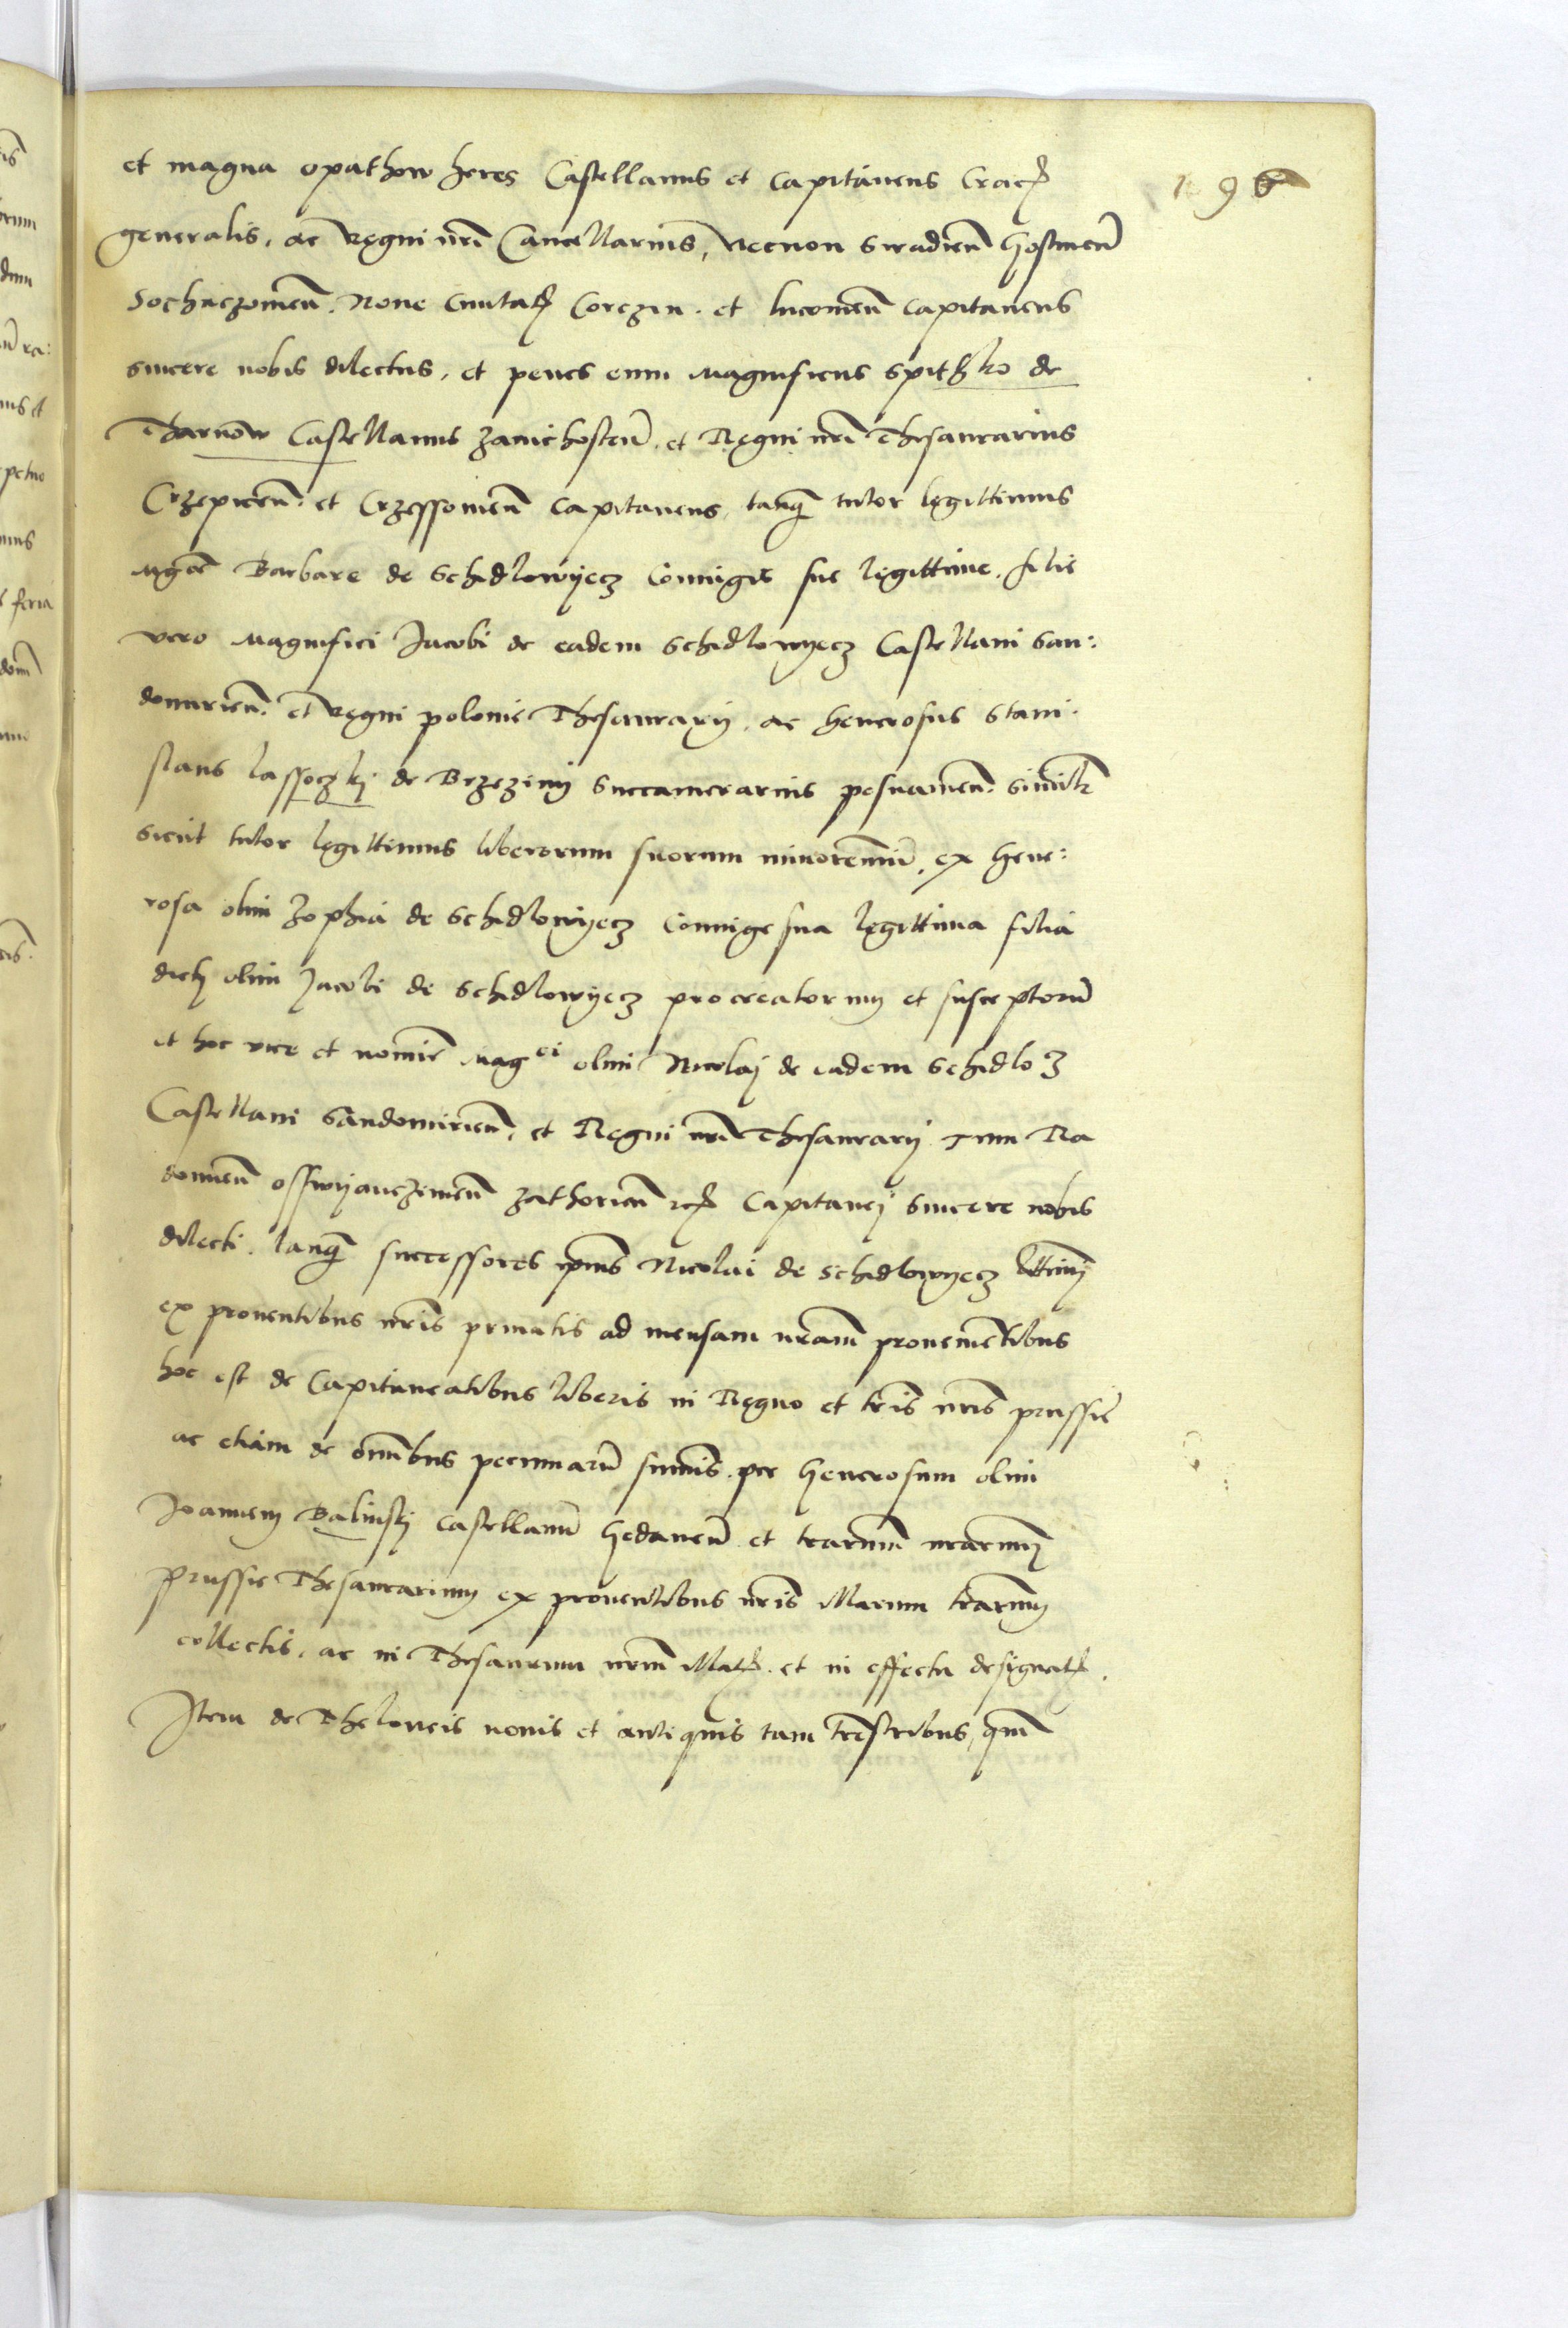 196
et magna opathow heres Castellanus et capitaneus Cracꝭ
generalis, ac Regni nr̃i Cancellarius, Necnon Siradieñ Gostineñ
Sochaczouieñ. None Ciuitatꝭ Corczin. et lucouieñ capitaneus
sincere nobis dilectus, et penes eum Magnificus Spithko de
Tharnow Castellanus Zauichosteñ. et Regni nr̃i Thesaurarius
Crzepiceñ. et Crzessouieñ capitaneus, tanq̃ tutor legittimus
Mg̃ce Barbare de Schidlowyecz Coniugis sue legittime. filie
vero Magnifici Jacobi de eadem Schidlowyecz Castellani San:
domirieñ. et Regni polonie Thesaurarij, ac Generosus Stani:
slaus lassoczkj de Brzeziny Succamerarius posnanieñ. similr̃
sicut tutor legittimus liberorum suorum minorenniũ, ex Gene:
rosa olim Zophia de Schidlowyecz Coniuge sua legittima filia
dictj olim Jacobi de Schidlowyecz procreatorum et susceptorũ
et hoc vice et nomine Mag^ci olim Nicolaj de eadem Schidlo3
Castellani Sandomirieñ, et Regni nr̃i Thesaurarij Tum Ra
domieñ osswyanczimeñ zathorieñ ꝛcꝭ Capitanej sincere nobis
dilecti. tanq̃ successores ip̃ius Nicolai de Schidlowyecz lt̃timj
ex prouentibus nr̃is priuatis ad mensam nr̃am prouenientibus
hoc est de Capitaneatibus liberis in Regno et tr̃is nr̃is prussie
ac etiam de om̃ibus pecuniarũ sum̃is, per Generosum olim
Joannem Balinskj Castellanũ Gedaneñ et tr̃arum nr̃arum
Prussie Thesaurarium ex prouentibus nr̃is illarum tr̃arum
collectis, ac in Thesaurum nr̃um illatꝭ. et in effectu designatꝭ.
Item de Theloneis nouis et antiquis tam tr̃estribus, q̃m